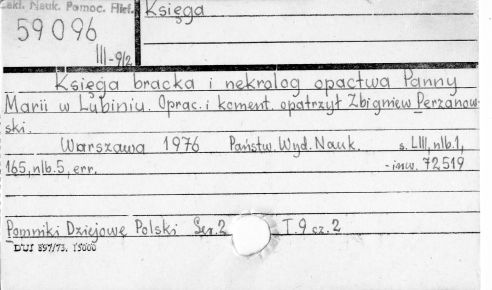 Zakł. Nauk. Pomoc. Hist.
59096
III-9/2
Księga
Księga bracka i nekrolog opactwa Panny
Marii w Lubiniu. Oprac. i koment. opatrzył Zbigniew Perzanow-
ski.
Warszawa 1976 Państw. Wyd. Nauk. s. LIII, nlb.1,
165, nlb.5, err. - inw. 72519
Pomniki Dziejowe Polski Ser.2 T.9 cz.2
DUJ 897/73. 15000